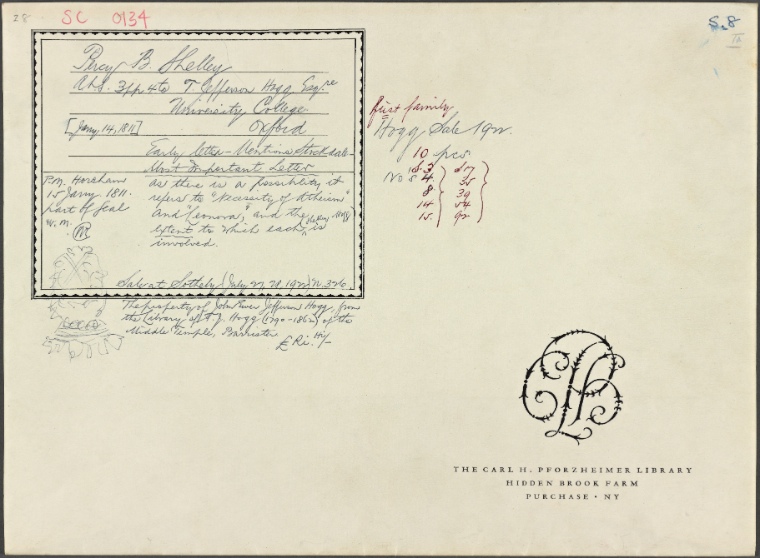 28
SC 0134
S.8
Percy B. Shelley
A.L.S. 3pp. 4to T. Jefferson Hogg Esqre
University College
[Jany 14, 1811] Oxford
Early letter - Mentions Stockdale -
Most Important Letter
as there is a possibility it
refers to "Necessity of Atheism"
and "Leonora", and the
extent to which each is
involved.
P.M. Horsham
15 Jany 1811.
part of Seal
W.M.
Sale at Sotheby July 27, 28, 1922 N. 326.
The property of John Jefferson Hogg, from
the Library of T. J. Hogg (1790-1862) of the
Middle Temple, Barrister
first family
Hogg Sale 1922.
10 pcs.
No's
4
8
14 54
15.
THE CARL H. PFORZHEIMER LIBRARY
HIDDEN BROOK FARM
PURCHASE · NY